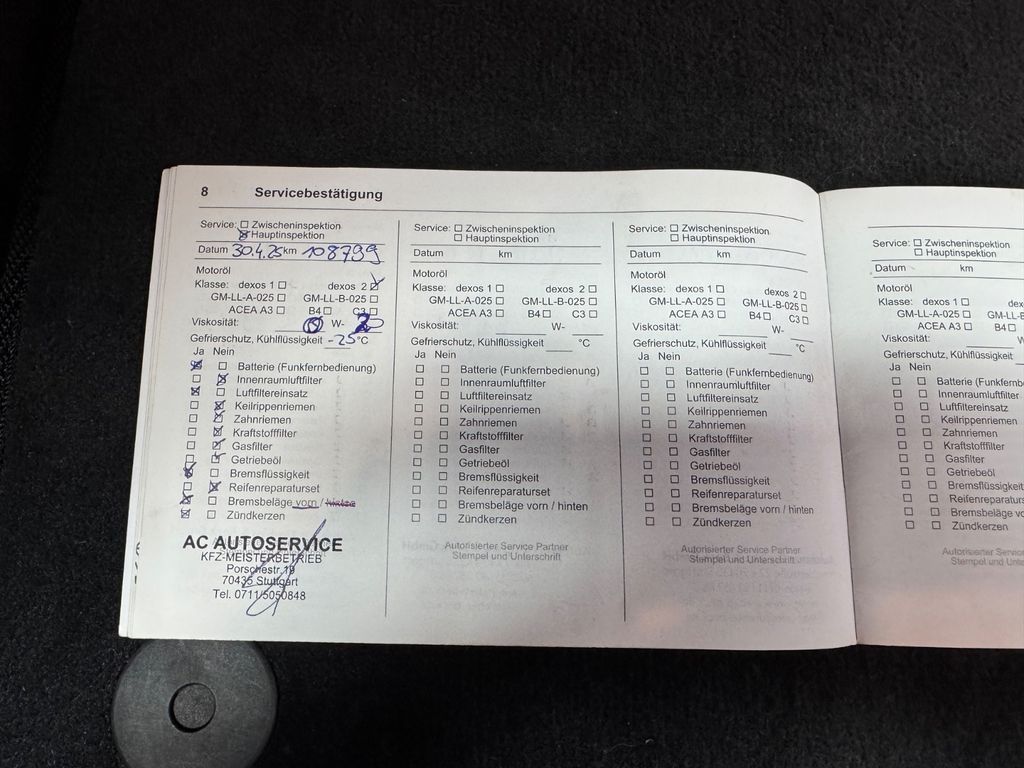 8 Servicebestätigung
Service: ☐ Zwischeninspektion
☒ Hauptinspektion
Datum 30.4.25 km 108799
Motoröl
Klasse: dexos 1 ☐ dexos 2 ☒
GM-LL-A-025 ☐ GM-LL-B-025 ☐
ACEA A3 ☐ B4 ☐ C3 ☐
Viskosität: W-
Gefrierschutz, Kühlflüssigkeit -25 °C
Ja Nein
☒ ☐ Batterie (Funkfernbedienung)
☐ ☒ Innenraumluftfilter
☒ ☐ Luftfiltereinsatz
☐ ☒ Keilrippenriemen
☐ ☒ Zahnriemen
☐ ☒ Kraftstofffilter
☐ ☒ Gasfilter
☐ ☒ Getriebeöl
☒ ☐ Bremsflüssigkeit
☐ ☒ Reifenreparaturset
☒ ☐ Bremsbeläge vorn / hinten
☒ ☐ Zündkerzen
AC AUTOSERVICE
KFZ-MEISTERBETRIEB
Porschestr. 19
70435 Stuttgart
Tel. 0711/5050848
Service: ☐ Zwischeninspektion
☐ Hauptinspektion
Datum km
Motoröl
Klasse: dexos 1 ☐ dexos 2 ☐
GM-LL-A-025 ☐ GM-LL-B-025 ☐
ACEA A3 ☐ B4 ☐ C3 ☐
Viskosität: W-
Gefrierschutz, Kühlflüssigkeit °C
Ja Nein
☐ ☐ Batterie (Funkfernbedienung)
☐ ☐ Innenraumluftfilter
☐ ☐ Luftfiltereinsatz
☐ ☐ Keilrippenriemen
☐ ☐ Zahnriemen
☐ ☐ Kraftstofffilter
☐ ☐ Gasfilter
☐ ☐ Getriebeöl
☐ ☐ Bremsflüssigkeit
☐ ☐ Reifenreparaturset
☐ ☐ Bremsbeläge vorn / hinten
☐ ☐ Zündkerzen
Autorisierter Service Partner
Stempel und Unterschrift
Service: ☐ Zwischeninspektion
☐ Hauptinspektion
Datum km
Motoröl
Klasse: dexos 1 ☐ dexos 2 ☐
GM-LL-A-025 ☐ GM-LL-B-025 ☐
ACEA A3 ☐ B4 ☐ C3 ☐
Viskosität: W-
Gefrierschutz, Kühlflüssigkeit °C
Ja Nein
☐ ☐ Batterie (Funkfernbedienung)
☐ ☐ Innenraumluftfilter
☐ ☐ Luftfiltereinsatz
☐ ☐ Keilrippenriemen
☐ ☐ Zahnriemen
☐ ☐ Kraftstofffilter
☐ ☐ Gasfilter
☐ ☐ Getriebeöl
☐ ☐ Bremsflüssigkeit
☐ ☐ Reifenreparaturset
☐ ☐ Bremsbeläge vorn / hinten
☐ ☐ Zündkerzen
Autorisierter Service Partner
Stempel und Unterschrift
Service: ☐ Zwischeninspektion
☐ Hauptinspektion
Datum km
Motoröl
Klasse: dexos 1 ☐
GM-LL-A-025 ☐ GM-L
ACEA A3 ☐ B4 ☐
Viskosität:
Gefrierschutz, Kühlflüssigkeit
Ja Nein
☐ ☐ Batterie (Funkfernb
☐ ☐ Innenraumluftfilter
☐ ☐ Luftfiltereinsatz
☐ ☐ Keilrippenriemen
☐ ☐ Zahnriemen
☐ ☐ Kraftstofffilter
☐ ☐ Gasfilter
☐ ☐ Getriebeöl
☐ ☐ Bremsflüssigkeit
☐ ☐ Reifenreparaturs
☐ ☐ Bremsbeläge vo
☐ ☐ Zündkerzen
Autorisierter Servic
Stempel und Unte